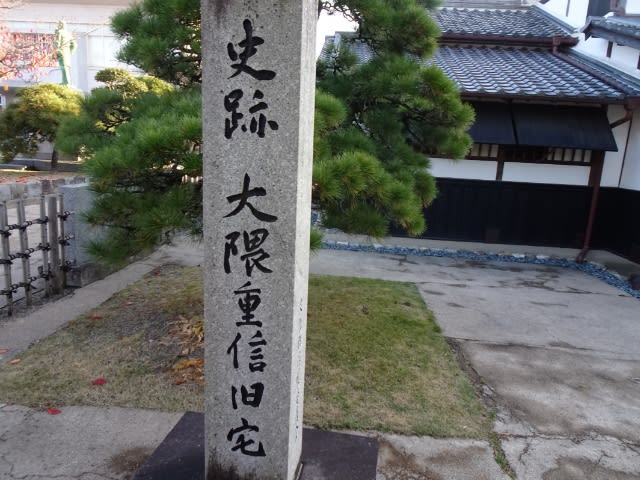 史跡 大隈重信旧宅